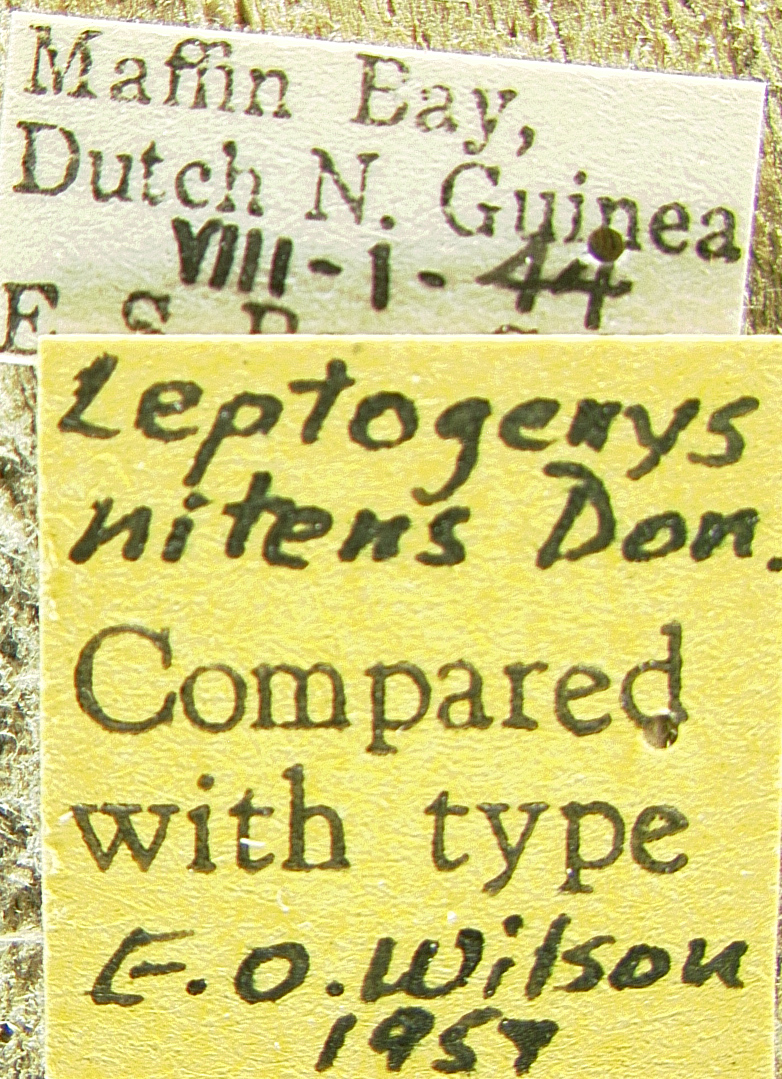 Maffin Bay,
Dutch N. Guinea
VIII-1-44
E S
Leptogenys
nitens Don.
Compared
with type
E.O. Wilson
1957